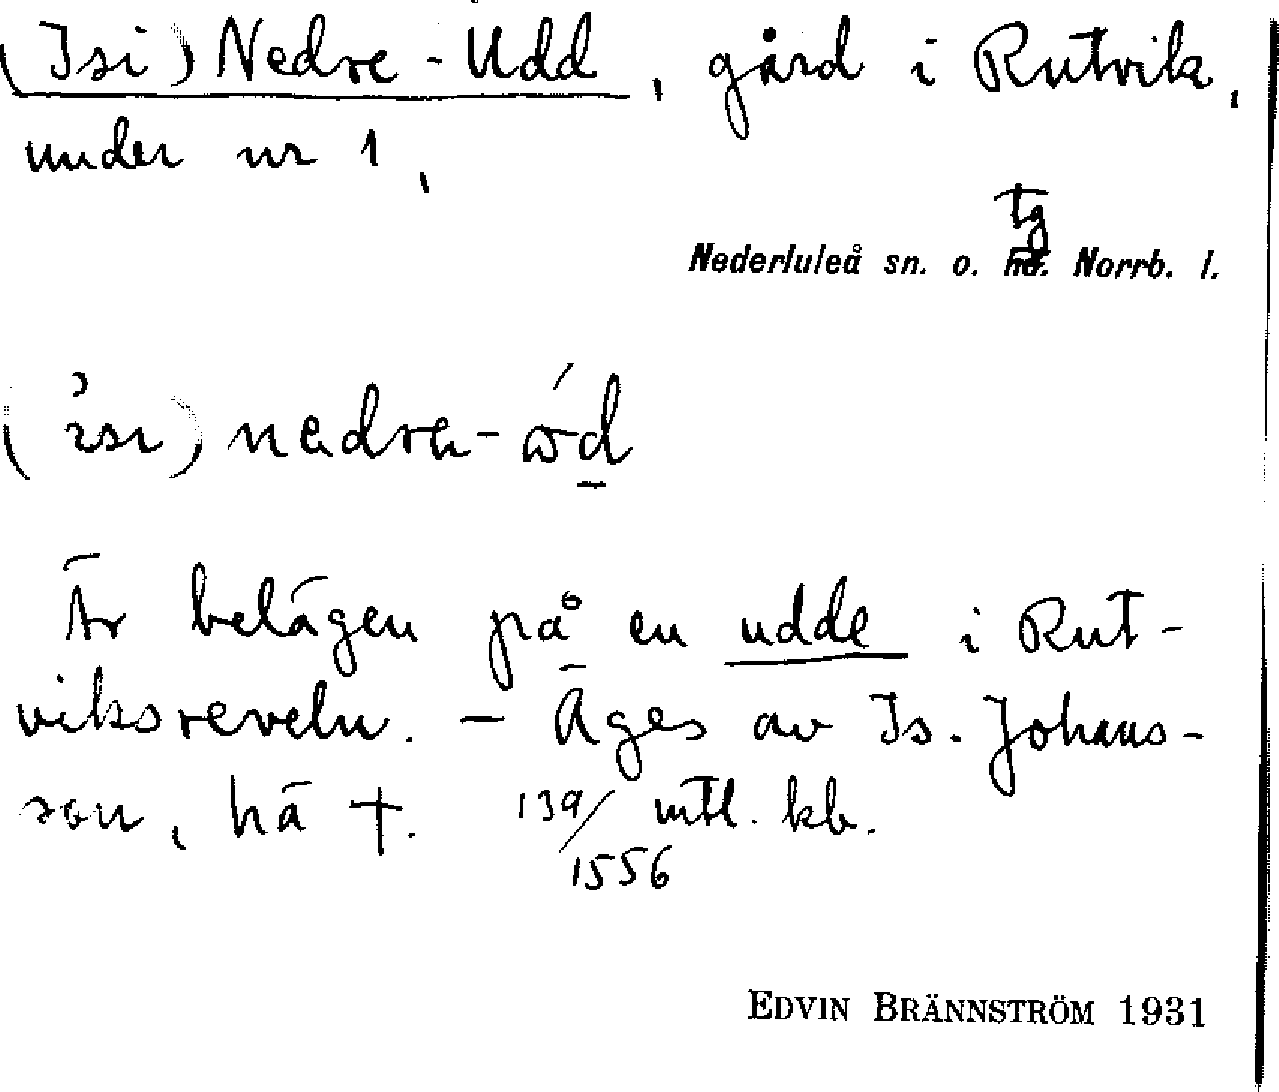 (Isi) Nedre-Udd, gård i Rutvik,
under nr 1,
tg
Nederluleå sn. o. hd. Norrb. l.
(isi) nedre-ωd
Är belägen på en udde i Rut-
viksreveln. – Äges av Is. Johans-
son, hä †. 139/1556 mtl. kb.
EDVIN BRÄNNSTRÖM 1931